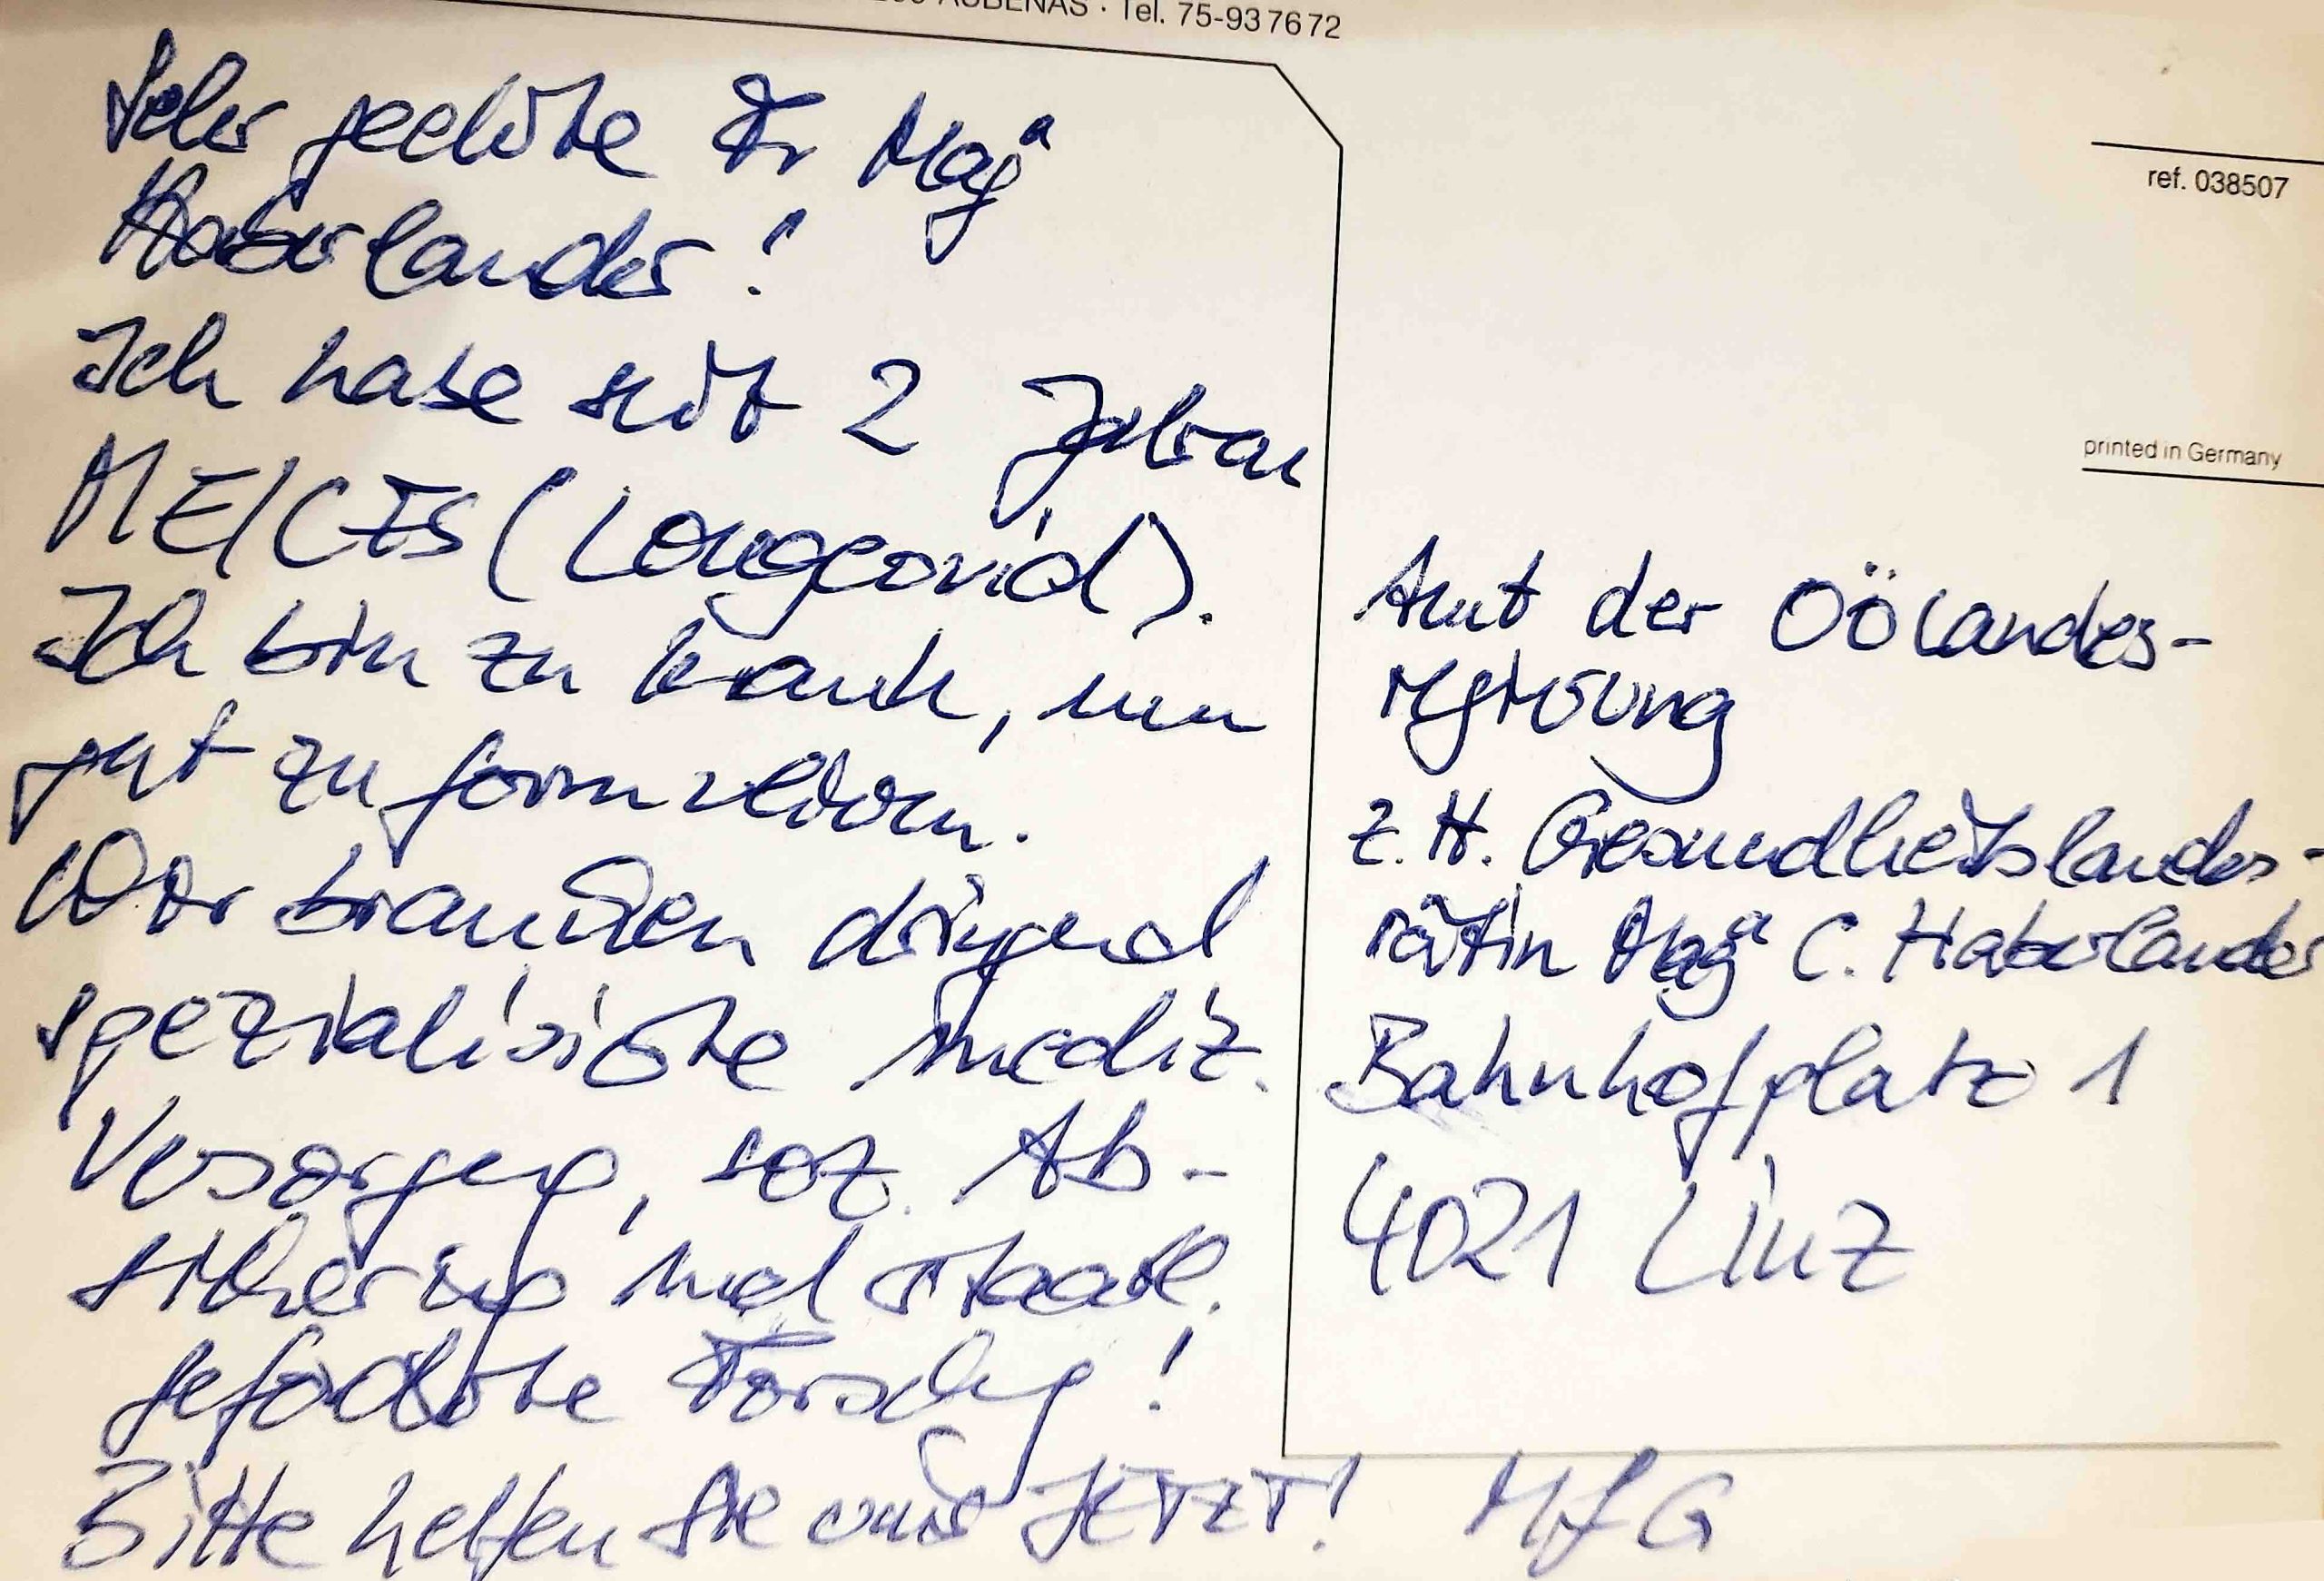 AUBENAS · Tel. 75-937672
Sehr geehrte Fr Magª
Haberlander!
Ich habe seit 2 Jahren
ME/CFS (Longcovid).
Ich bin zu krank, um
gut zu formulieren.
Wir brauchen dringend
spezialisierte mediz.
Versorgung, soz. Ab-
sicherung und staatl.
geförderte Forschung!
Bitte helfen Sie uns JETZT! MfG
ref. 038507
printed in Germany
Amt der OÖ Landes-
regierung
z. H. Gesundheitslandes-
rätin Magª C. Haberlander
Bahnhofplatz 1
4021 Linz